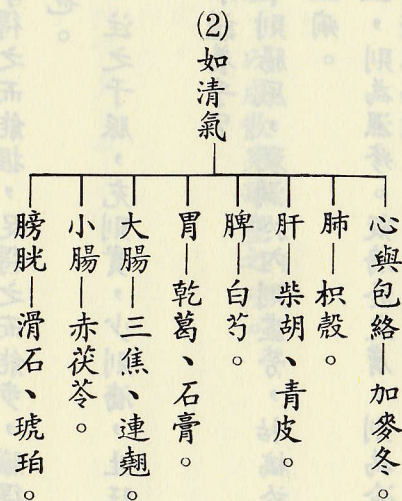 (2)
如清氣
心與包絡—加麥冬。
肺—枳殼。
肝—柴胡、青皮。
脾—白芍。
胃—乾葛、石膏。
大腸—三焦、連翹。
小腸—赤茯苓。
膀胱—滑石、琥珀。